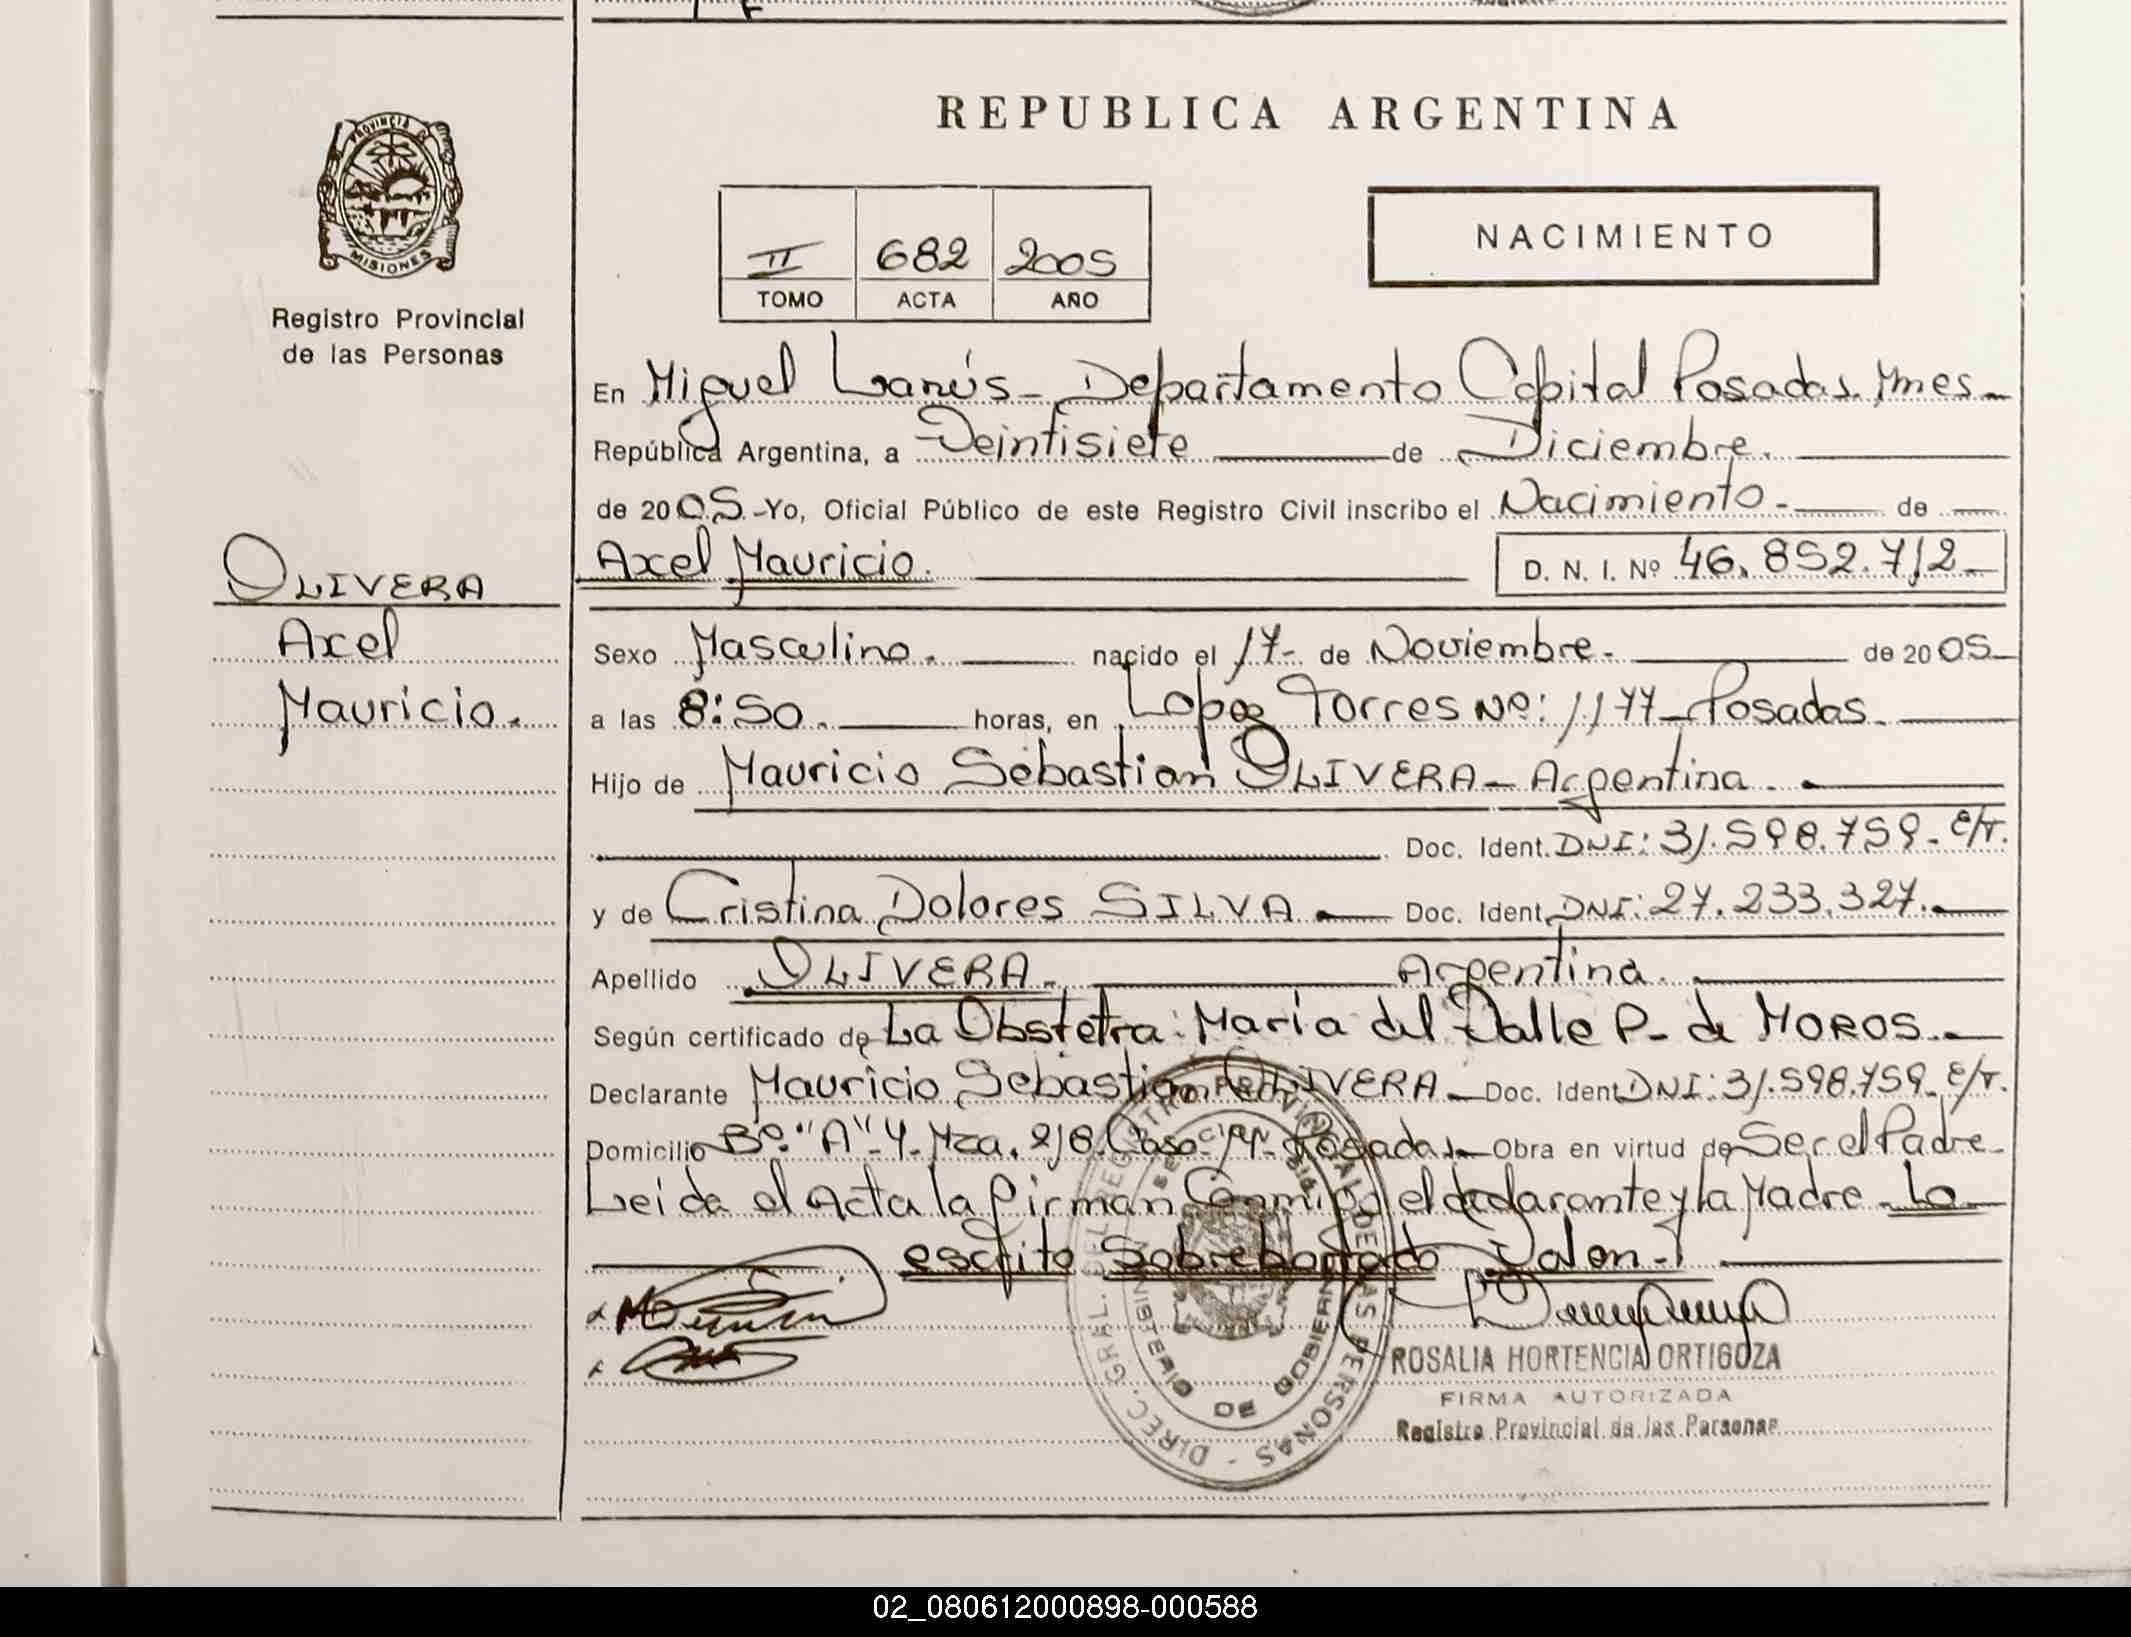 REPUBLICA ARGENTINA
PROVINCIA DE
MISIONES
Registro Provincial
de las Personas
II 682 2005
TOMO ACTA AÑO
NACIMIENTO
En Miguel Lanús - Departamento Capital Posadas Mnes -
República Argentina, a Veintisiete de Diciembre.
de 2005.-Yo, Oficial Público de este Registro Civil inscribo el Nacimiento - de
Axel Mauricio. D. N. I. Nº 46.852.712-
OLIVERA
Axel
Mauricio.
Sexo Masculino. nacido el 17- de Noviembre. de 2005
a las 8:50. horas, en Lopez Torres Nº: 1177 - Posadas.
Hijo de Mauricio Sebastian OLIVERA - Argentina.
Doc. Ident. DNI: 31.598.759- E/T.
y de Cristina Dolores SILVA. Doc. Ident. DNI: 27.233.327.
Apellido OLIVERA. Argentina.
Según certificado de La Obstetra: María del Valle P. de MOROS.
Declarante Mauricio Sebastian OLIVERA - Doc. Ident. DNI: 31.598.759- E/T.
Domicilio Bº "A"-4- Mza. 218. Casa Posadas Obra en virtud de Ser el Padre-
Leida el Acta la firman Conmigo el declarante y la Madre - Lo
escrito Sobreborrado Valen-
DIREC. GRAL. DEL REGISTRO PROVINCIAL DE LAS PERSONAS
MINISTERIO DE GOBIERNO
ROSALIA HORTENCIA ORTIGOZA
FIRMA AUTORIZADA
Registro Provincial de las Personas
02_080612000898-000588